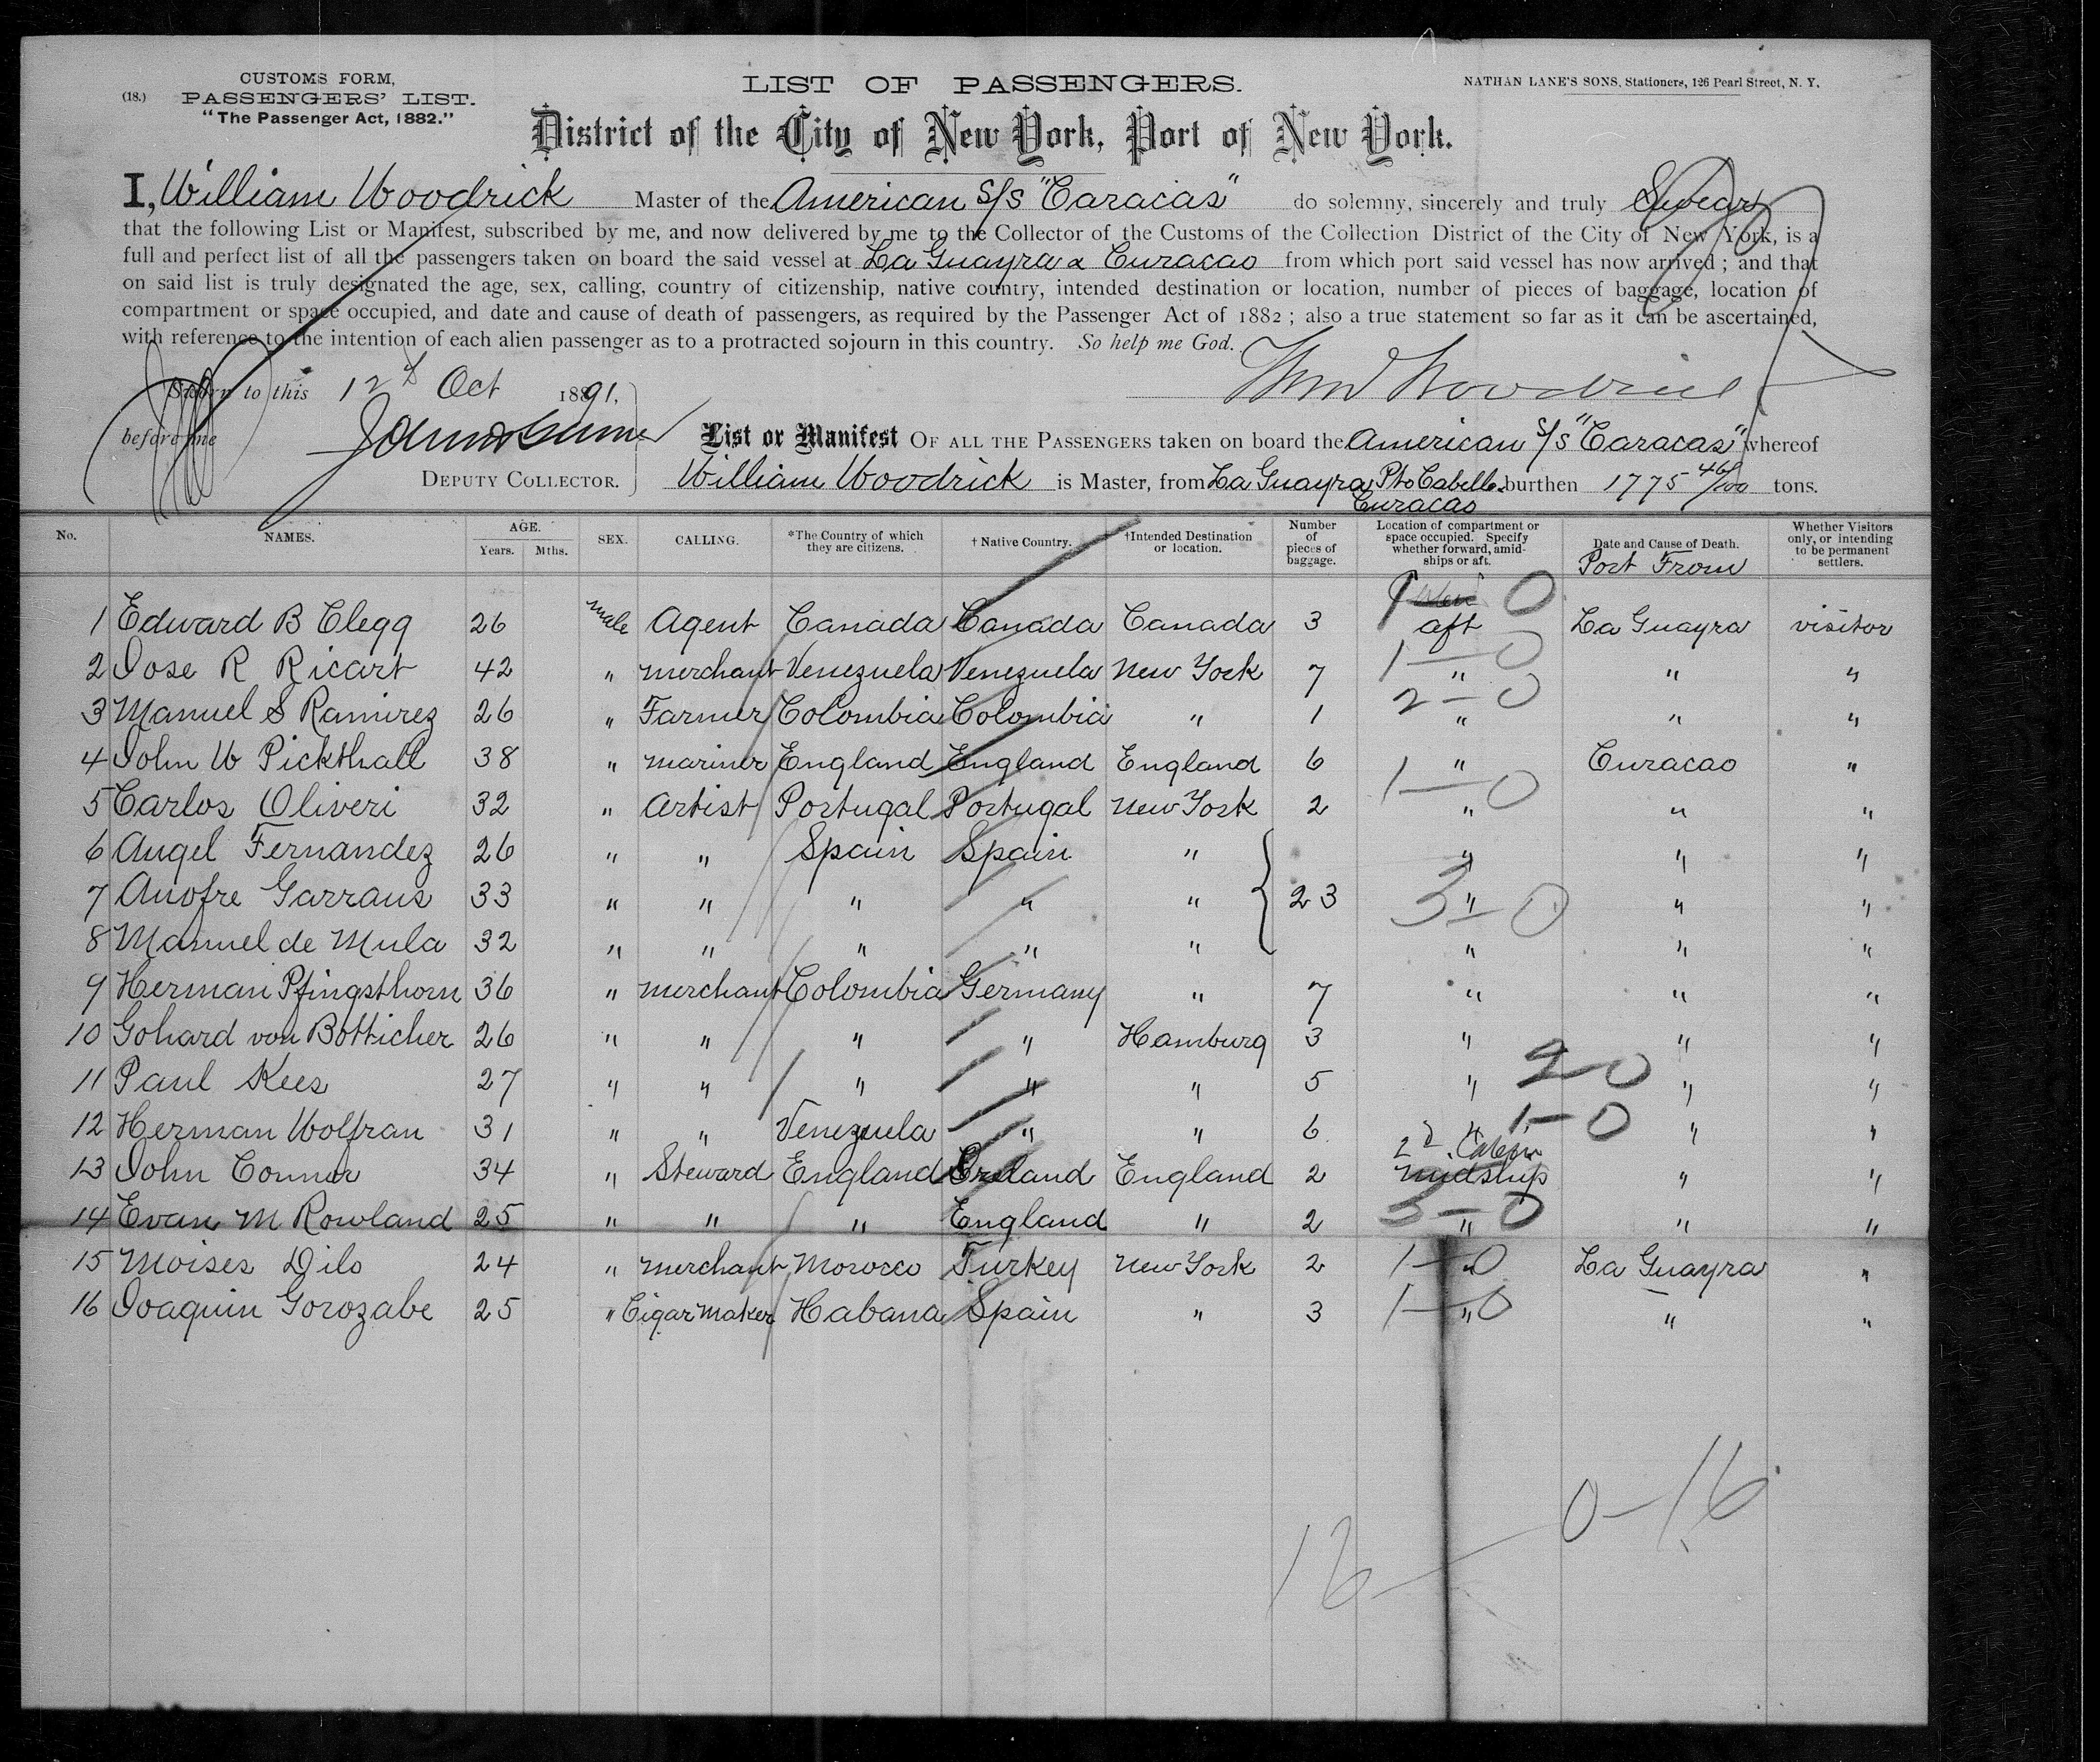 (18.)
CUSTOMS FORM,
PASSENGERS' LIST.
"The Passenger Act, 1882."
LIST OF PASSENGERS.
NATHAN LANE'S SONS, Stationers, 126 Pearl Street, N. Y.
District of the City of New York, Port of New York.
I, William Woodrick Master of the American S/S "Caracas" do solemny, sincerely and truly Swear
that the following List or Manifest, subscribed by me, and now delivered by me to the Collector of the Customs of the Collection District of the City of New York, is a
full and perfect list of all the passengers taken on board the said vessel at La Guayra & Curacao from which port said vessel has now arrived; and that
on said list is truly designated the age, sex, calling, country of citizenship, native country, intended destination or location, number of pieces of baggage, location of
compartment or space occupied, and date and cause of death of passengers, as required by the Passenger Act of 1882; also a true statement so far as it can be ascertained,
with reference to the intention of each alien passenger as to a protracted sojourn in this country. So help me God.
Wm Woodrick
Sworn to this 12th Oct 1891,
before me
DEPUTY COLLECTOR.
List or Manifest OF ALL THE PASSENGERS taken on board the American S/S "Caracas" whereof
William Woodrick is Master, from La Guayra Pto Cabello burthen 1775 46/100 tons.
Curacao
No. NAMES. AGE. Years. Mths. SEX. CALLING. *The Country of which they are citizens. † Native Country. †Intended Destination or location. Number of pieces of baggage. Location of compartment or space occupied. Specify whether forward, amidships or aft. Date and Cause of Death. Port From Whether Visitors only, or intending to be permanent settlers.
1 Edward B Clegg 26 male Agent Canada Canada Canada 3 aft La Guayra visitor
1 0
2 Jose R Ricart 42 " merchant Venezuela Venezuela New York 7 " " "
1-0
3 Manuel S Ramirez 26 " Farmer Colombia Colombia " 1 " " "
2-0
4 John W Pickthall 38 " mariner England England England 6 " Curacao "
5 Carlos Oliveri 32 " Artist Portugal Portugal New York 2 " " "
1-0
6 Angel Fernandez 26 " " Spain Spain " " " "
7 Anofre Garraus 33 " " " " " 23 " " "
3-0
8 Manuel de Mula 32 " " " " " " " "
9 Herman Pfingsthorn 36 " merchant Colombia Germany " 7 " " "
10 Gohard von Botticher 26 " " " " Hamburg 3 " " "
11 Paul Kees 27 " " " " " 5 " " "
2-0
12 Herman Wolfran 31 " " Venezuela " " 6 " " "
1-0
2d Cabin
13 John Conner 34 " Steward England Ireland England 2 midship " "
14 Evan M Rowland 25 " " " England " 2 " " "
3-0
15 Moises Dilo 24 " merchant Morocco Turkey New York 2 " La Guayra "
1-0
16 Joaquin Gorozabe 25 " Cigar maker Habana Spain " 3 " " "
1-0
0-16
16-